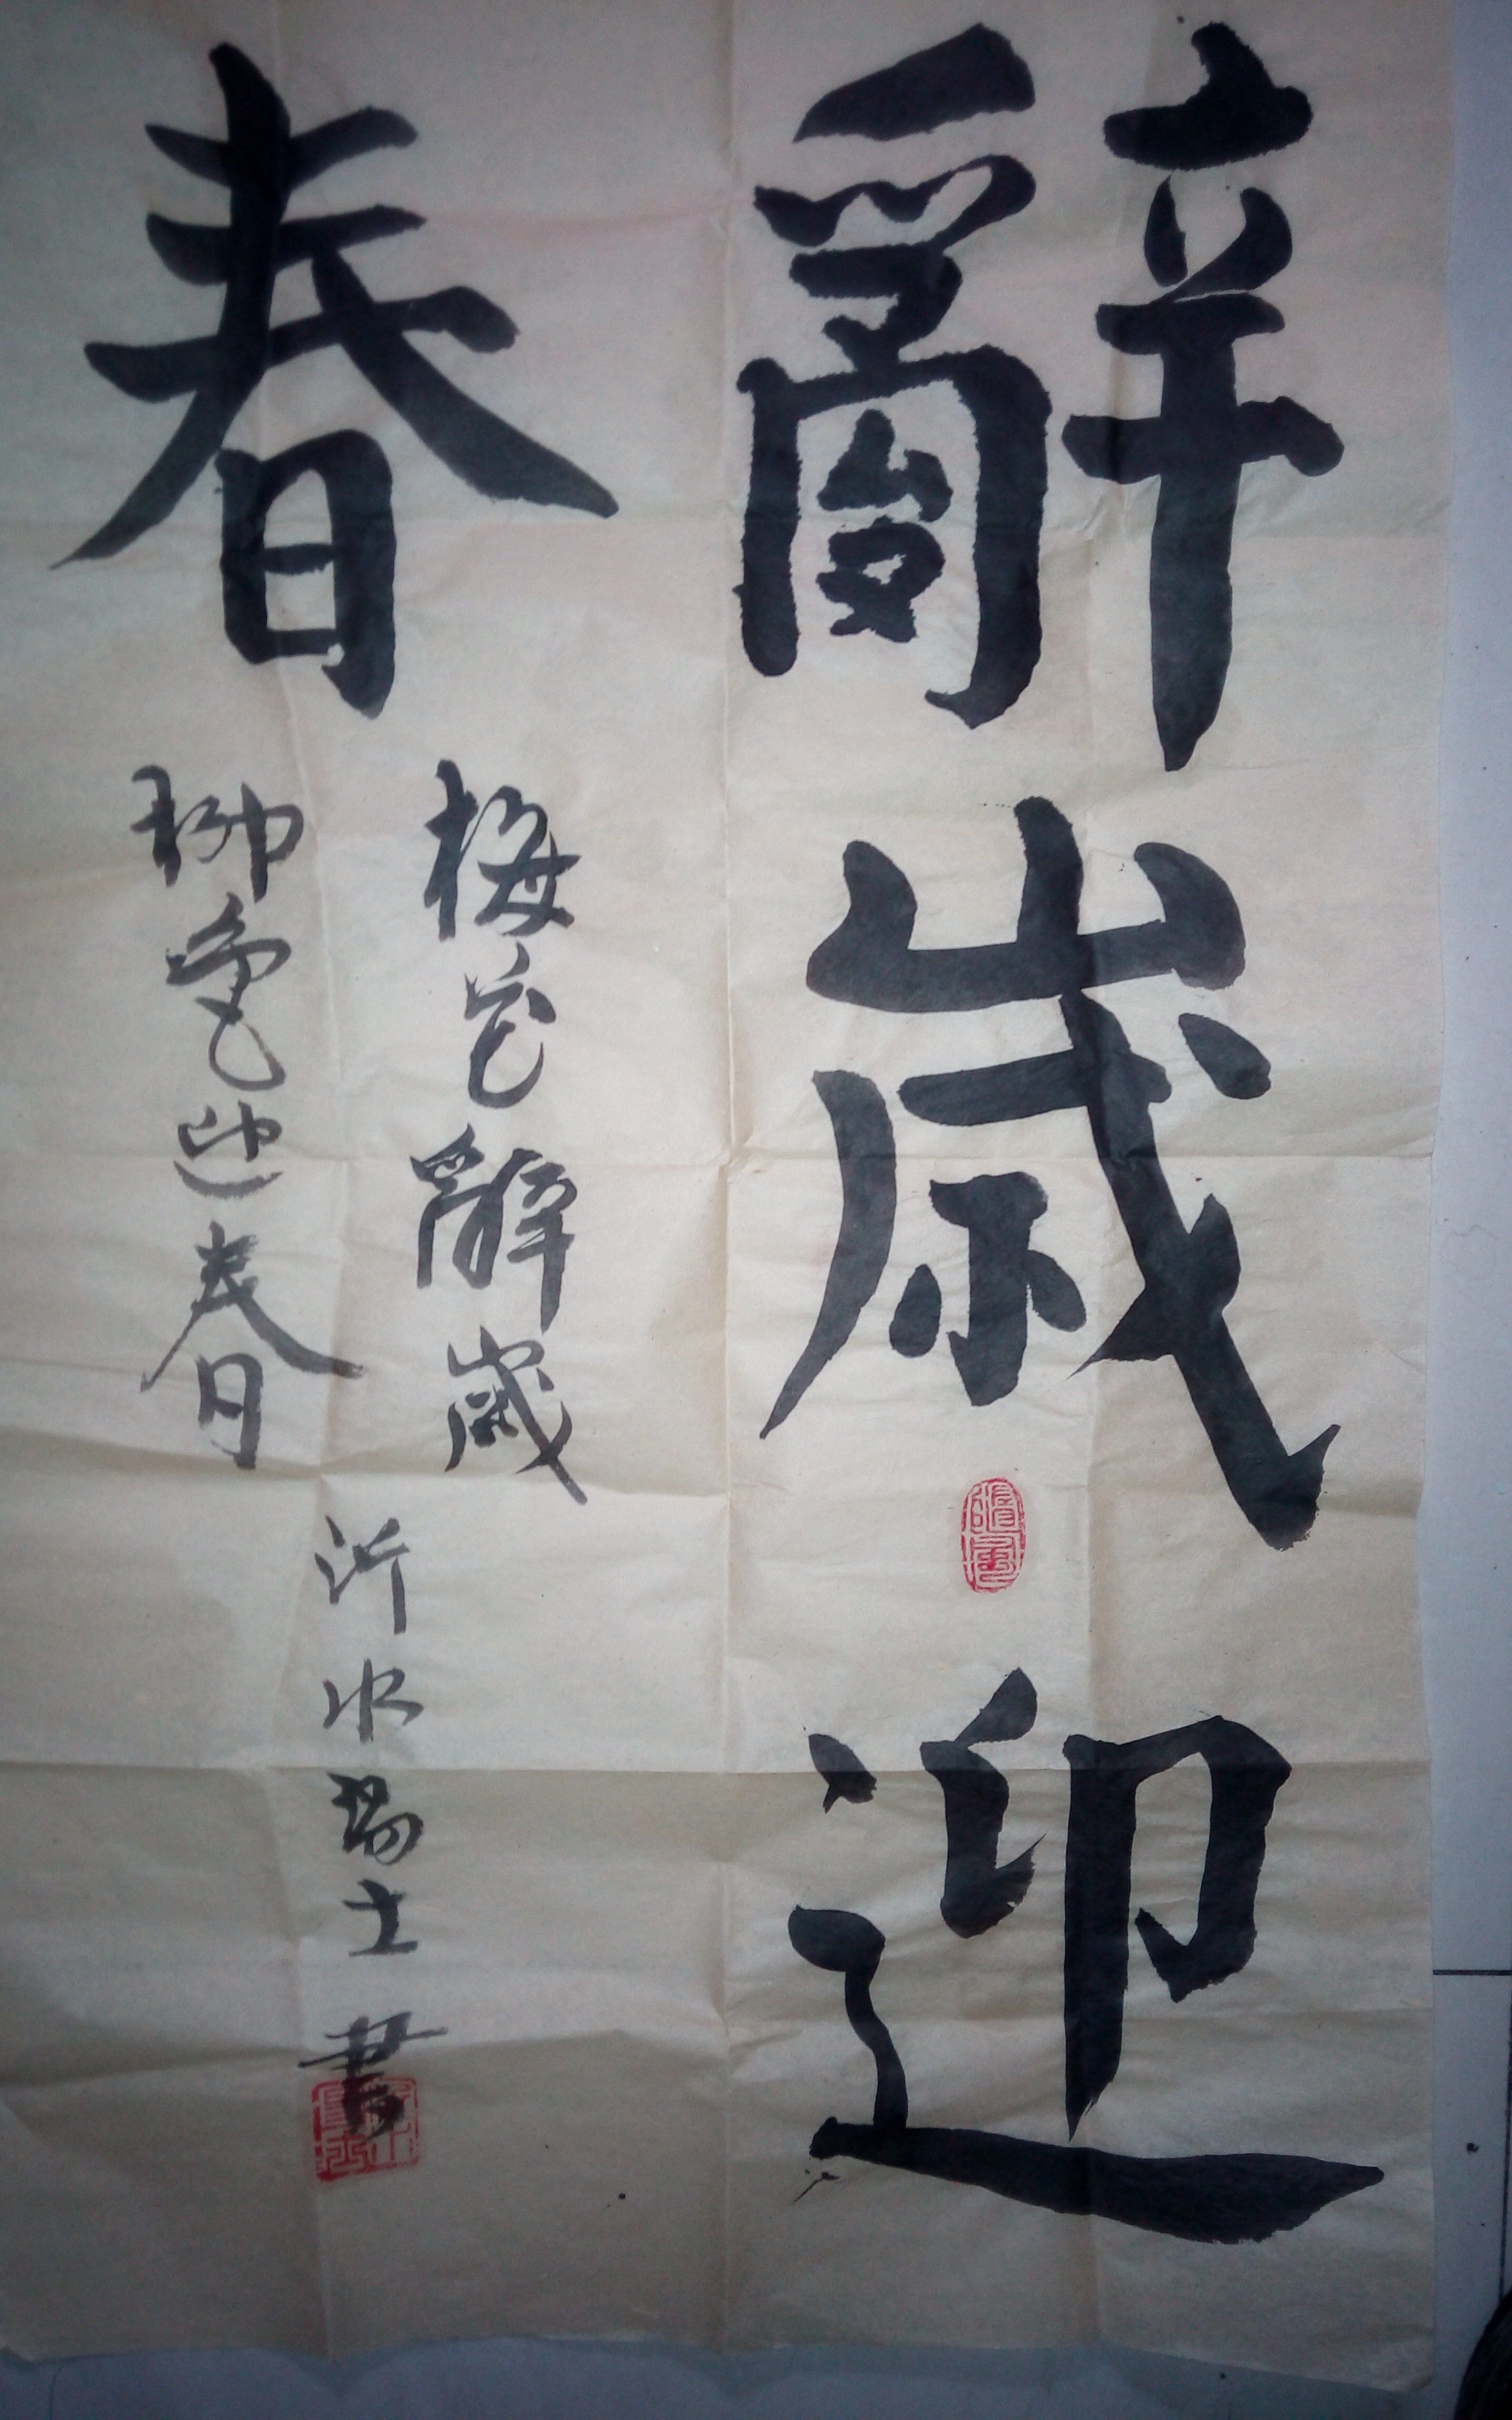 辭歲迎
春
梅花辭歲
柳色迎春
沂水易士書